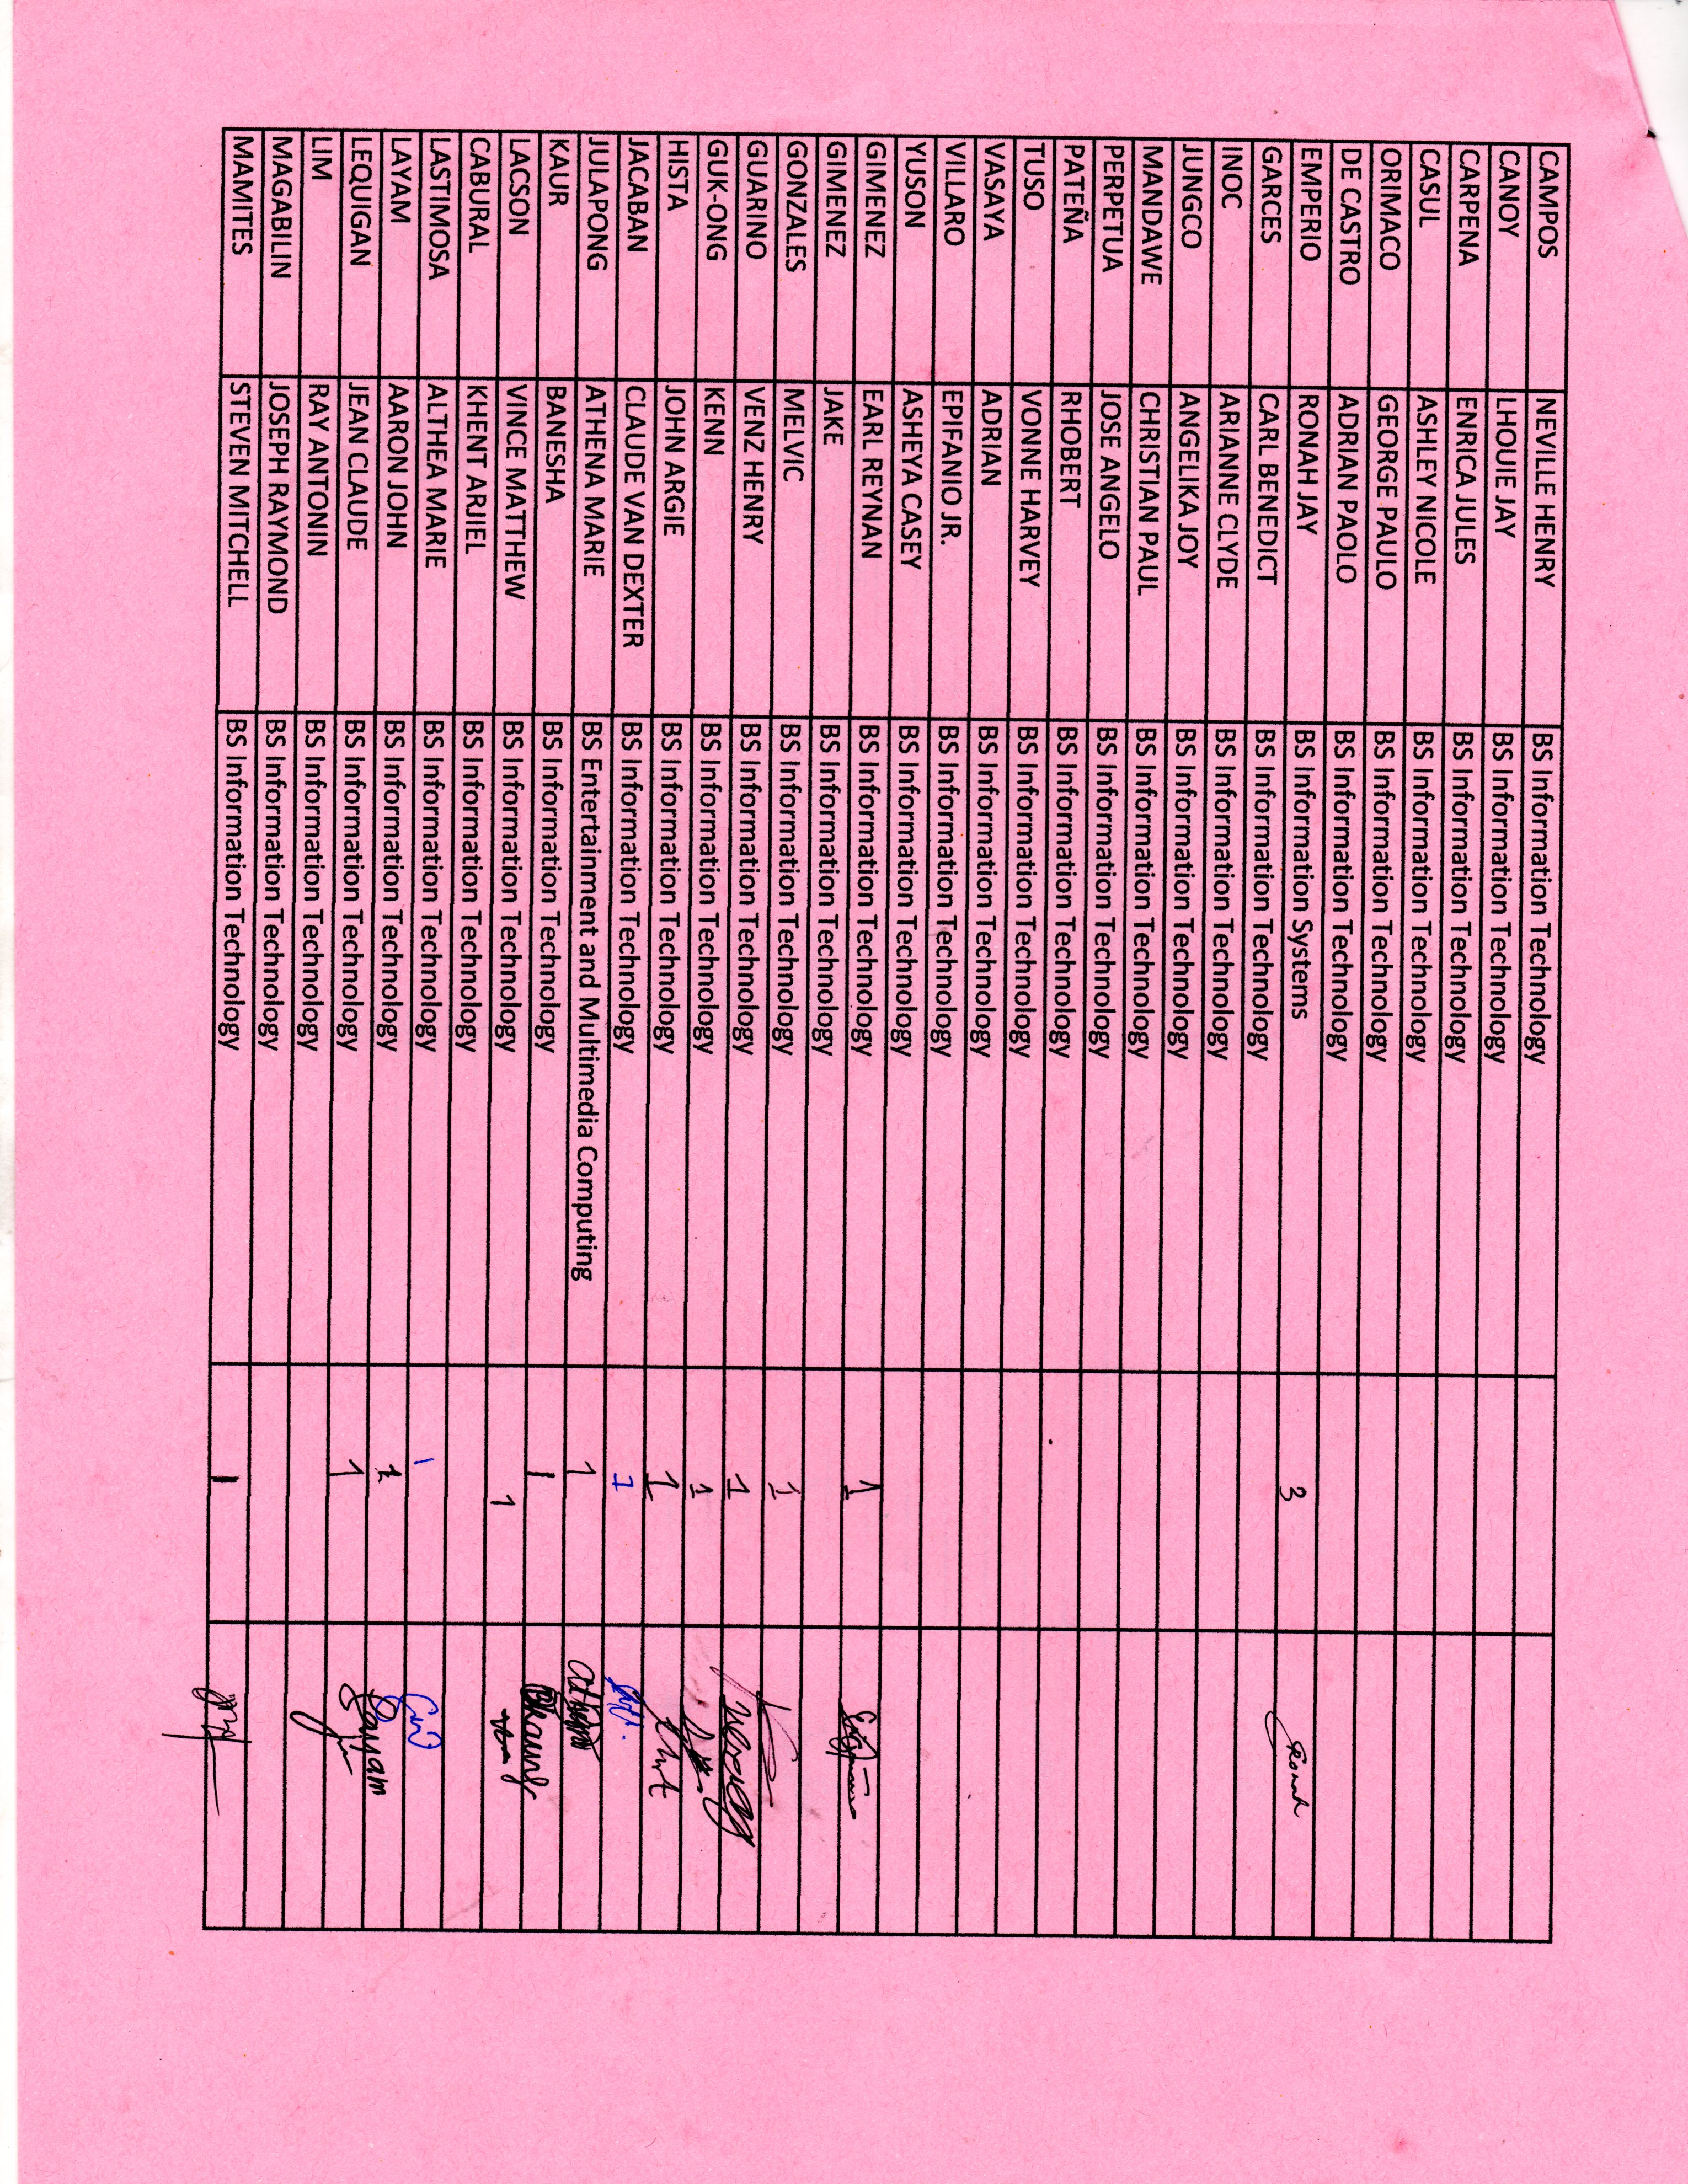 CAMPOS NEVILLE HENRY BS Information Technology
CANOY LHOUIE JAY BS Information Technology
CARPENA ENRICA JULES BS Information Technology
CASUL ASHLEY NICOLE BS Information Technology
ORIMACO GEORGE PAULO BS Information Technology
DE CASTRO ADRIAN PAOLO BS Information Technology
EMPERIO RONAH JAY BS Information Systems 3 Ronah
GARCES CARL BENEDICT BS Information Technology
INOC ARIANNE CLYDE BS Information Technology
JUNGCO ANGELIKA JOY BS Information Technology
MANDAWE CHRISTIAN PAUL BS Information Technology
PERPETUA JOSE ANGELO BS Information Technology
PATEÑA RHOBERT BS Information Technology
TUSO VONNE HARVEY BS Information Technology
VASAYA ADRIAN BS Information Technology
VILLARO EPIFANIO JR. BS Information Technology
YUSON ASHEYA CASEY BS Information Technology
GIMENEZ EARL REYNAN BS Information Technology 1
GIMENEZ JAKE BS Information Technology
GONZALES MELVIC BS Information Technology 1
GUARINO VENZ HENRY BS Information Technology 1
GUK-ONG KENN BS Information Technology 1
HISTA JOHN ARGIE BS Information Technology 1
JACABAN CLAUDE VAN DEXTER BS Information Technology 1
JULAPONG ATHENA MARIE BS Entertainment and Multimedia Computing 1
KAUR BANESHA BS Information Technology 1 Bkaur
LACSON VINCE MATTHEW BS Information Technology 1
CABURAL KHENT ARJIEL BS Information Technology
LASTIMOSA ALTHEA MARIE BS Information Technology 1
LAYAM AARON JOHN BS Information Technology 1 Layam
LEQUIGAN JEAN CLAUDE BS Information Technology 1
LIM RAY ANTONIN BS Information Technology
MAGABILIN JOSEPH RAYMOND BS Information Technology
MAMITES STEVEN MITCHELL BS Information Technology 1